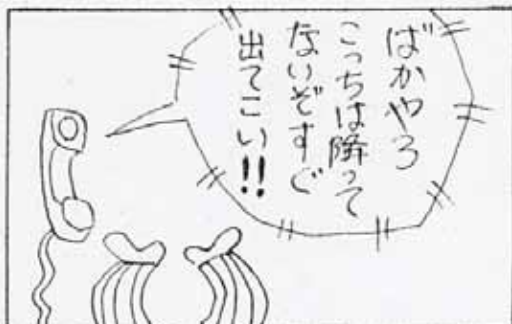 ばかやろ
こっちは降って
ないぞすぐ
出てこい!!